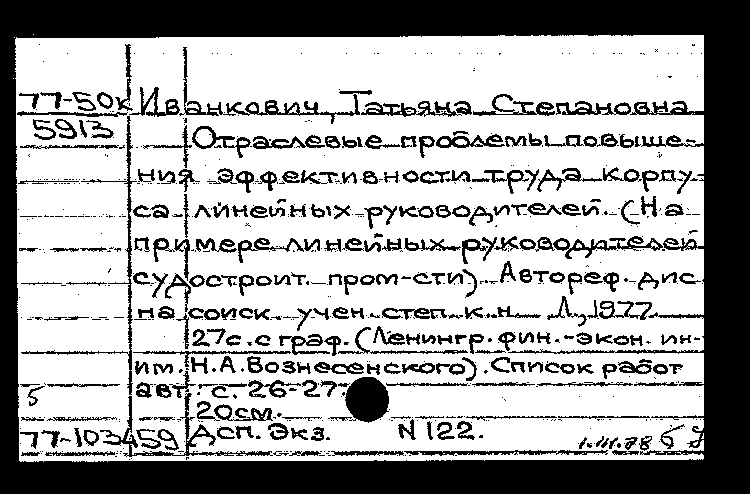 77-50к Иванкович, Татьяна Степановна
5913 Отраслевые проблемы повыше-
ния эффективности труда корпу-
са линейных руководителей. (На
примере линейных руководителей
судостроит. пром-сти) Автореф. дис
на соиск. учен. степ. к. н. Л., 1977.
27с. с граф. (Ленингр. фин.-экон. ин-
им. Н.А. Вознесенского). Список работ
5 авт.: с. 26-27
20см.
77-103459 Дсп. Экз. N 122. 1.III.78 б